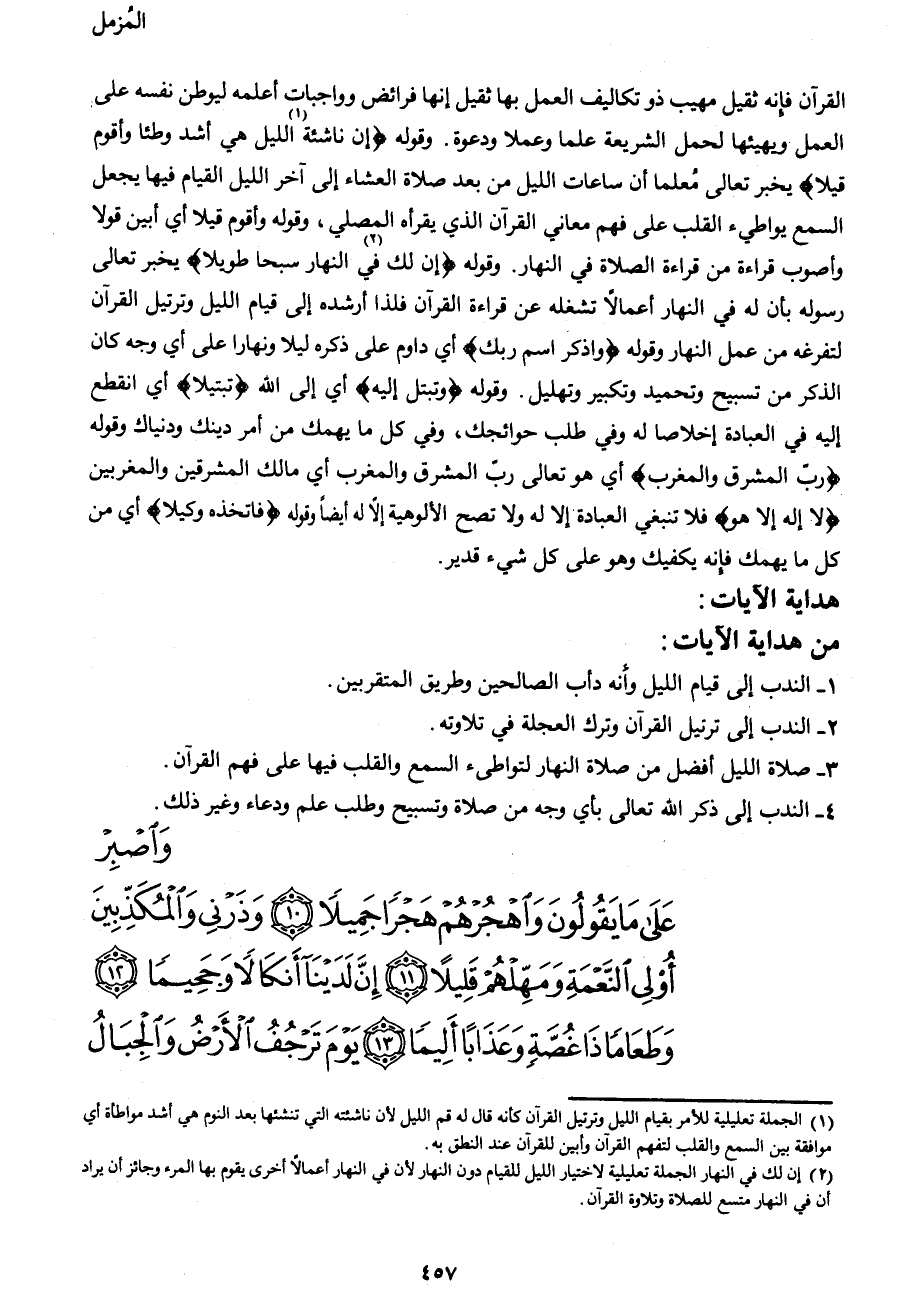 المُزمل
القرآن فإنه ثقيل مهيب ذو تكاليف العمل بها ثقيل إنها فرائض وواجبات أعلمه ليوطن نفسه على
العمل ويهيئها لحمل الشريعة علما وعملا ودعوة. وقوله ﴿إن ناشئة(١) الليل هي أشد وطئا وأقوم
قيلا﴾ يخبر تعالى مُعلما أن ساعات الليل من بعد صلاة العشاء إلى آخر الليل القيام فيها يجعل
السمع يواطيء القلب على فهم معاني القرآن الذي يقرأه المصلي، وقوله وأقوم قيلا أي أبين قولا
وأصوب قراءة من قراءة الصلاة في النهار. وقوله ﴿إن لك في(٢) النهار سبحا طويلا﴾ يخبر تعالى
رسوله بأن له في النهار أعمالًا تشغله عن قراءة القرآن فلذا أرشده إلى قيام الليل وترتيل القرآن
لتفرغه من عمل النهار وقوله ﴿واذكر اسم ربك﴾ أي داوم على ذكره ليلا ونهارا على أي وجه كان
الذكر من تسبيح وتحميد وتكبير وتهليل. وقوله ﴿وتبتل إليه﴾ أي إلى الله ﴿تبتيلا﴾ أي انقطع
إليه في العبادة إخلاصا له وفي طلب حوائجك، وفي كل ما يهمك من أمر دينك ودنياك وقوله
﴿ربّ المشرق والمغرب﴾ أي هو تعالى ربّ المشرق والمغرب أي مالك المشرقين والمغربين
﴿لا إله إلا هو﴾ فلا تنبغي العبادة إلا له ولا تصح الألوهية إلّا له أيضاً وقوله ﴿فاتخذه وكيلا﴾ أي من
كل ما يهمك فإنه يكفيك وهو على كل شيء قدير.
هداية الآيات:
من هداية الآيات:
١ـ الندب إلى قيام الليل وأنه دأب الصالحين وطريق المتقربين.
٢ـ الندب إلى ترتيل القرآن وترك العجلة في تلاوته.
٣ـ صلاة الليل أفضل من صلاة النهار لتواطىء السمع والقلب فيها على فهم القرآن.
٤ـ الندب إلى ذكر الله تعالى بأي وجه من صلاة وتسبيح وطلب علم ودعاء وغير ذلك.
وَٱصۡبِرۡ
عَلَىٰ مَا يَقُولُونَ وَٱهۡجُرۡهُمۡ هَجۡرٗا جَمِيلٗا ١٠ وَذَرۡنِي وَٱلۡمُكَذِّبِينَ
أُوْلِي ٱلنَّعۡمَةِ وَمَهِّلۡهُمۡ قَلِيلًا ١١ إِنَّ لَدَيۡنَآ أَنكَالٗا وَجَحِيمٗا ١٢
وَطَعَامٗا ذَا غُصَّةٖ وَعَذَابًا أَلِيمٗا ١٣ يَوۡمَ تَرۡجُفُ ٱلۡأَرۡضُ وَٱلۡجِبَالُ
(١) الجملة تعليلية للأمر بقيام الليل وترتيل القرآن كأنه قال له قم الليل لأن ناشئته التي تنشئها بعد النوم هي أشد مواطأة أي
موافقة بين السمع والقلب لتفهم القرآن وأبين للقرآن عند النطق به.
(٢) إن لك في النهار الجملة تعليلية لاختيار الليل للقيام دون النهار لأن في النهار أعمالًا أخرى يقوم بها المرء وجائز أن يراد
أن في النهار متسع للصلاة وتلاوة القرآن.
٤٥٧